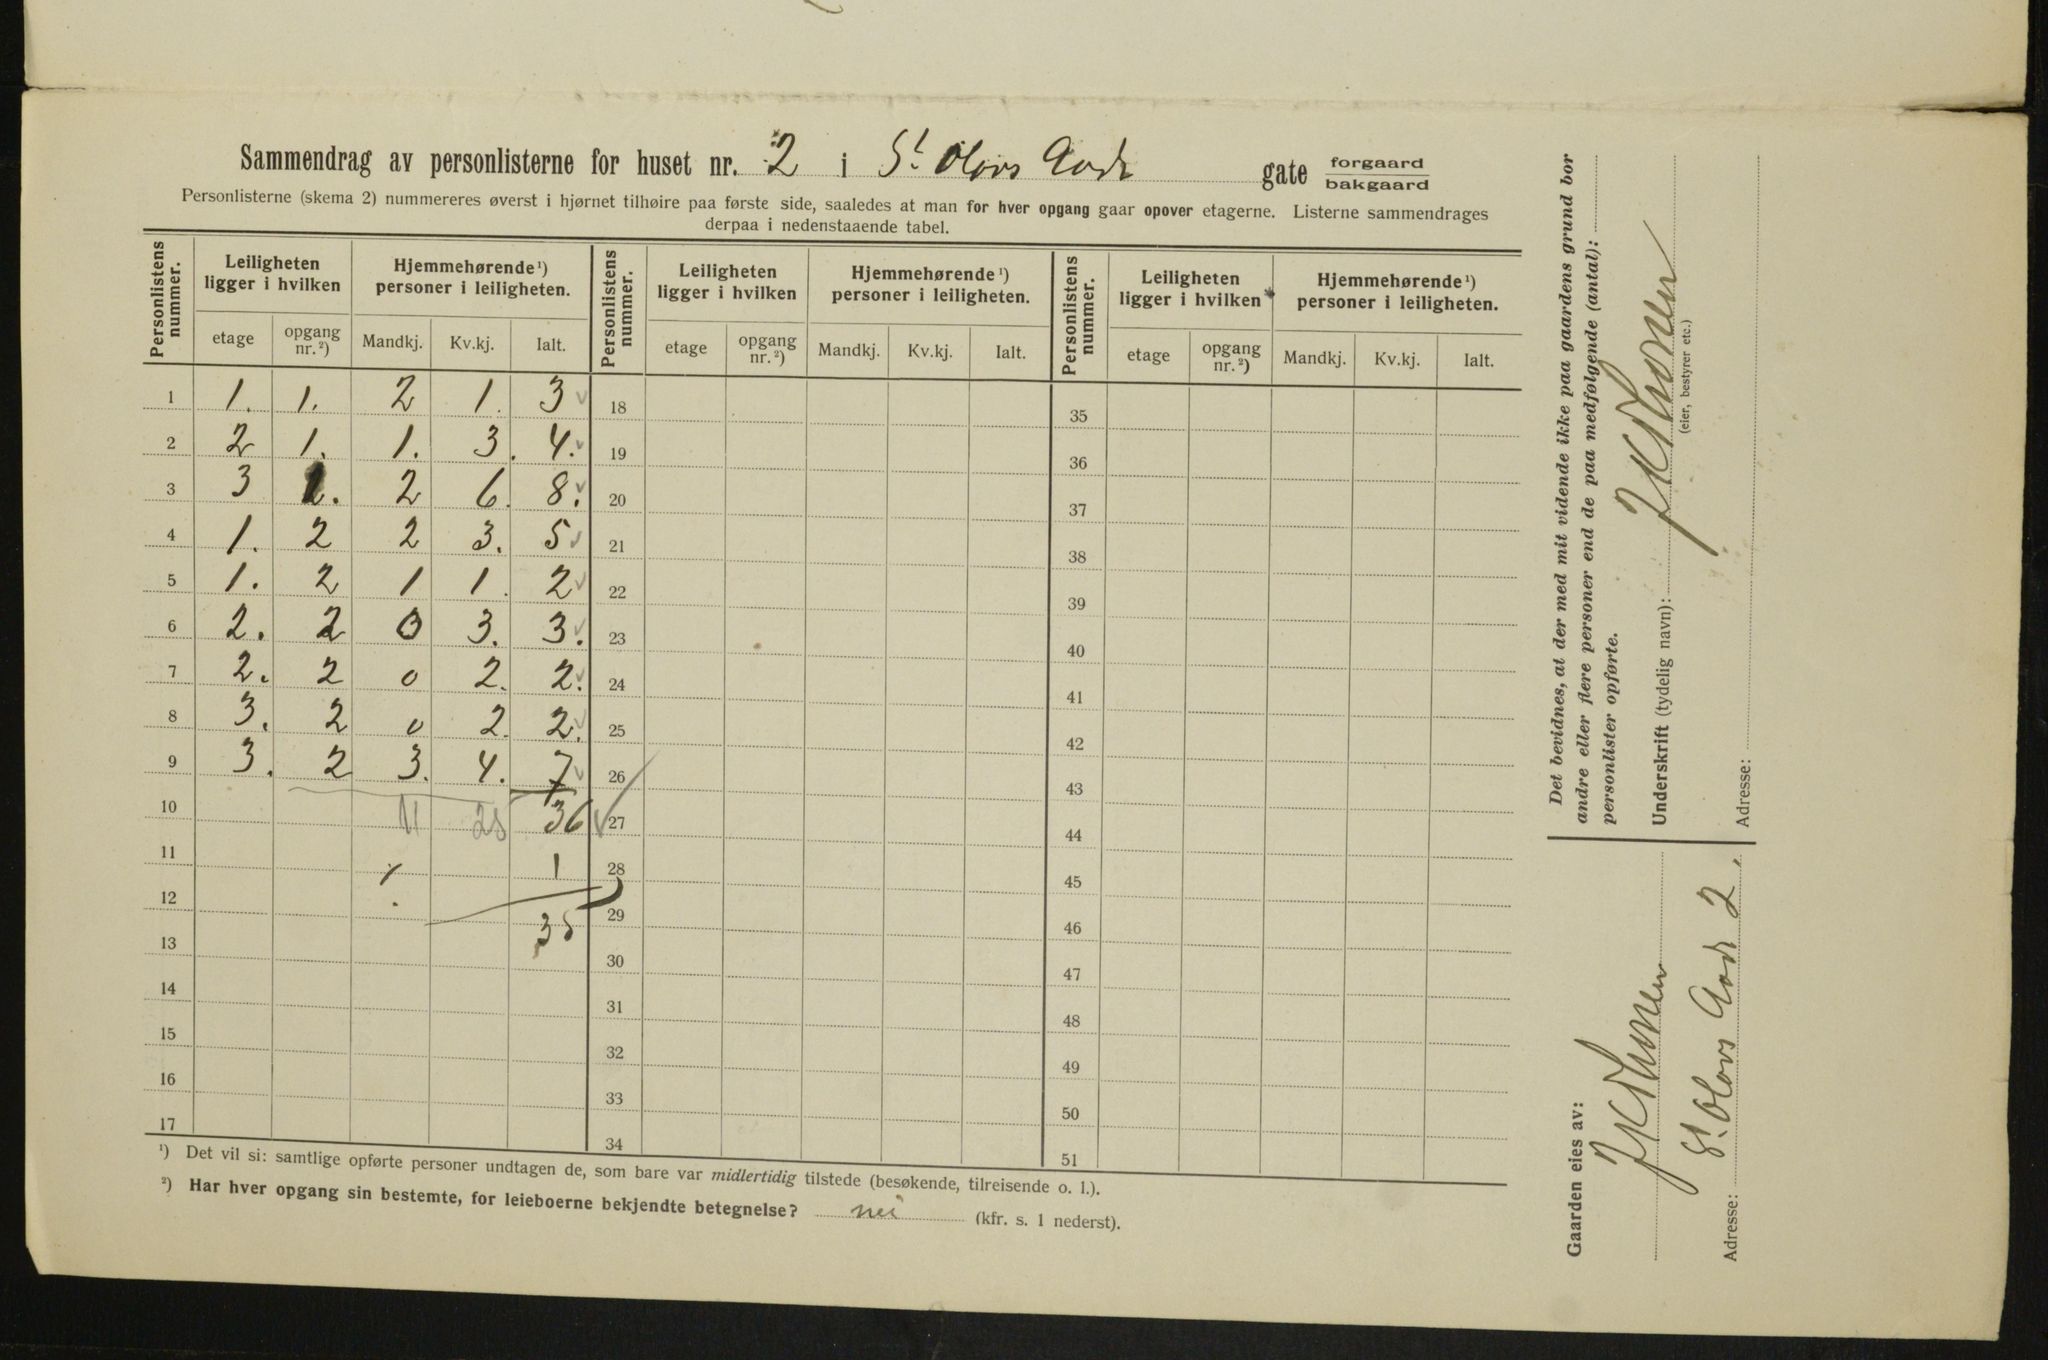 Sammendrag av personlisterne for huset nr. 2 i St. Olavs Gade gate forgaard
bakgaard
Personlisterne (skema 2) nummereres øverst i hjørnet tilhøire paa første side, saaledes at man for hver opgang gaar opover etagerne. Listerne sammendrages
derpaa i nedenstaaende tabel.
Personlistens nummer. Leiligheten ligger i hvilken Hjemmehørende ¹) personer i leiligheten. Personlistens nummer. Leiligheten ligger i hvilken Hjemmehørende ¹) personer i leiligheten. Personlistens nummer. Leiligheten ligger i hvilken Hjemmehørende ¹) personer i leiligheten.
etage opgang nr. ²) Mandkj. Kv.kj. Ialt. etage opgang nr. ²) Mandkj. Kv.kj. Ialt. etage opgang nr. ²) Mandkj. Kv.kj. Ialt.
1 1. 1. 2 1. 3 18 35
2 2 1. 1. 3. 4. 19 36
3 3 1. 2 6. 8. 20 37
4 1. 2 2 3. 5 21 38
5 1. 2 1 1. 2 22 39
6 2. 2 0 3. 3. 23 40
7 2. 2 0 2. 2. 24 41
8 3. 2 0 2. 2. 25 42
9 3. 2 3. 4. 7 26 43
10 11 25 36 27 44
11 1 28 45
12 35 29 46
13 30 47
14 31 48
15 32 49
16 33 50
17 34 51
¹) Det vil si: samtlige opførte personer undtagen de, som bare var midlertidig tilstede (besøkende, tilreisende o. l.).
²) Har hver opgang sin bestemte, for leieboerne bekjendte betegnelse? nei (kfr. s. 1 nederst).
Det bevidnes, at der med mit vidende ikke paa gaardens grund bor
andre eller flere personer end de paa medfølgende (antal):
personlister opførte.
Underskrift (tydelig navn):
(eier, bestyrer etc.)
Adresse:
Gaarden eies av:
Adresse: St. Olavs Gade 2.